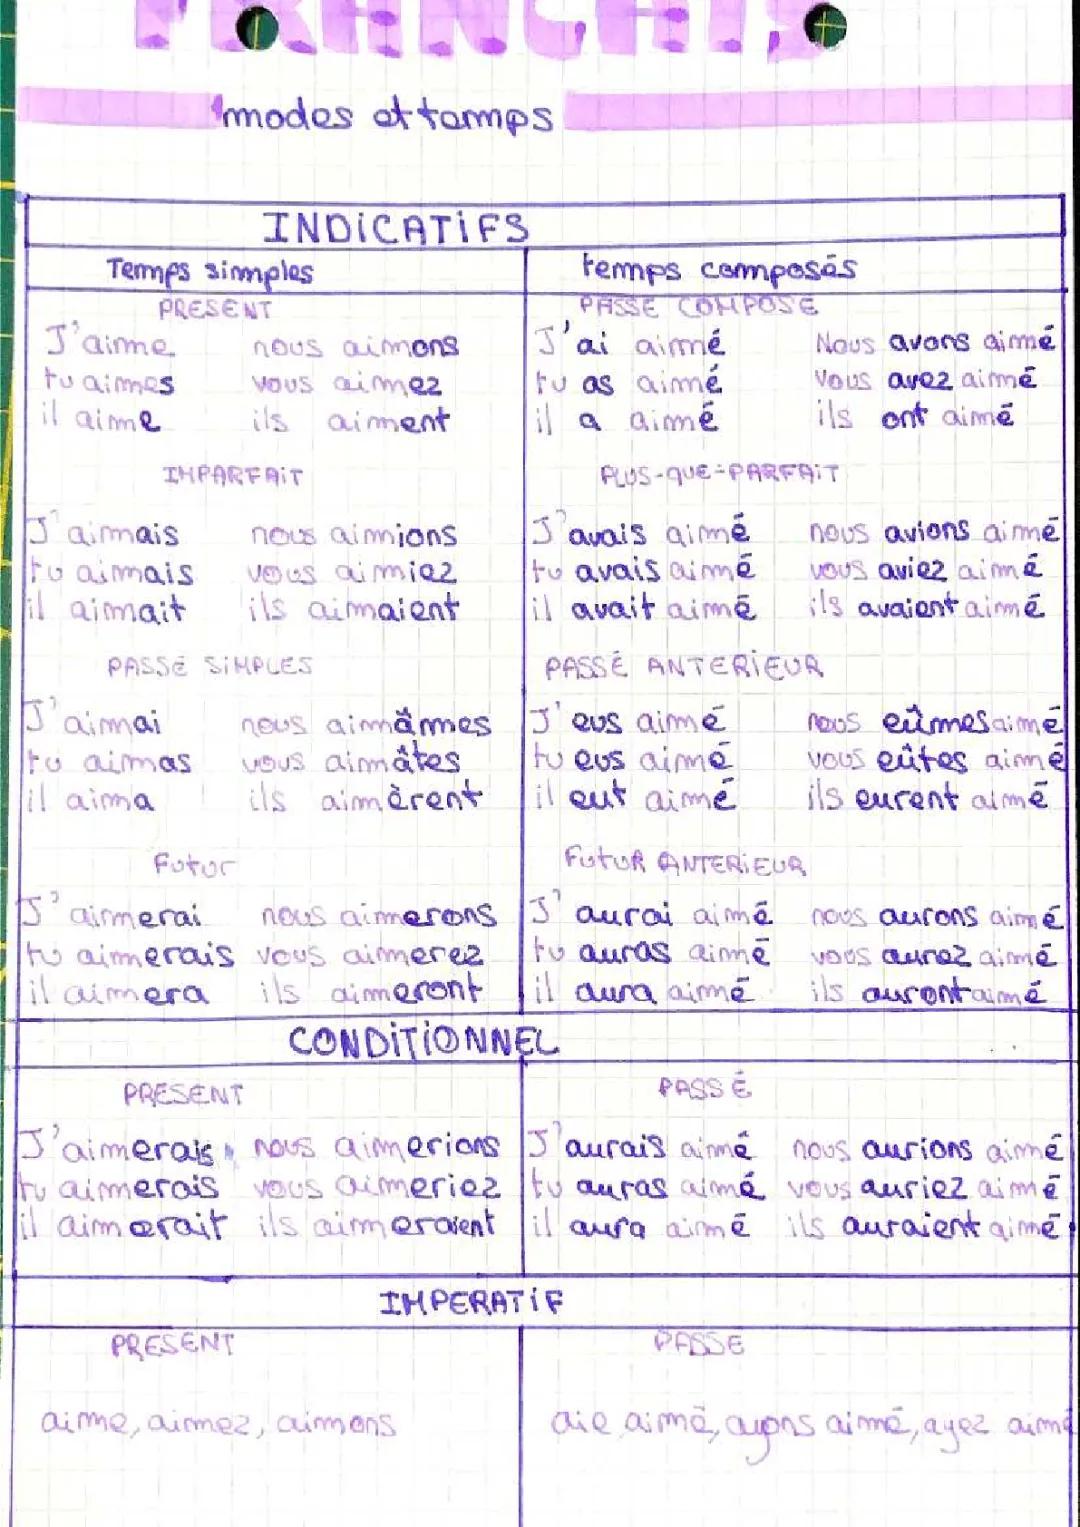 FRANÇAIS
modes et temps
INDICATIFS
Temps simples temps composés
PRESENT PASSE COMPOSE
J'aime nous aimons J'ai aimé Nous avons aimé
tu aimes vous aimez tu as aimé vous avez aimé
il aime ils aiment il a aimé ils ont aimé
IMPARFAIT PLUS-QUE-PARFAIT
J'aimais nous aimions J'avais aimé nous avions aimé
tu aimais vous aimiez tu avais aimé vous aviez aimé
il aimait ils aimaient il avait aimé ils avaient aimé
PASSÉ SIMPLES PASSÉ ANTERIEUR
J'aimai nous aimâmes J'eus aimé nous eûmes aimé
tu aimas vous aimâtes tu eus aimé vous eûtes aimé
il aima ils aimèrent il eut aimé ils eurent aimé
Futur FUTUR ANTERIEUR
J'aimerai nous aimerons J'aurai aimé nous aurons aimé
tu aimerais vous aimerez tu auras aimé vous aurez aimé
il aimera ils aimeront il aura aimé ils auront aimé
CONDITIONNEL
PRESENT PASSÉ
J'aimerais nous aimerions J'aurais aimé nous aurions aimé
tu aimerais vous aimeriez tu auras aimé vous auriez aimé
il aimerait ils aimeraient il aura aimé ils auraient aimé
IMPERATIF
PRESENT PASSE
aime, aimez, aimons aie aimé, ayons aimé, ayez aimé